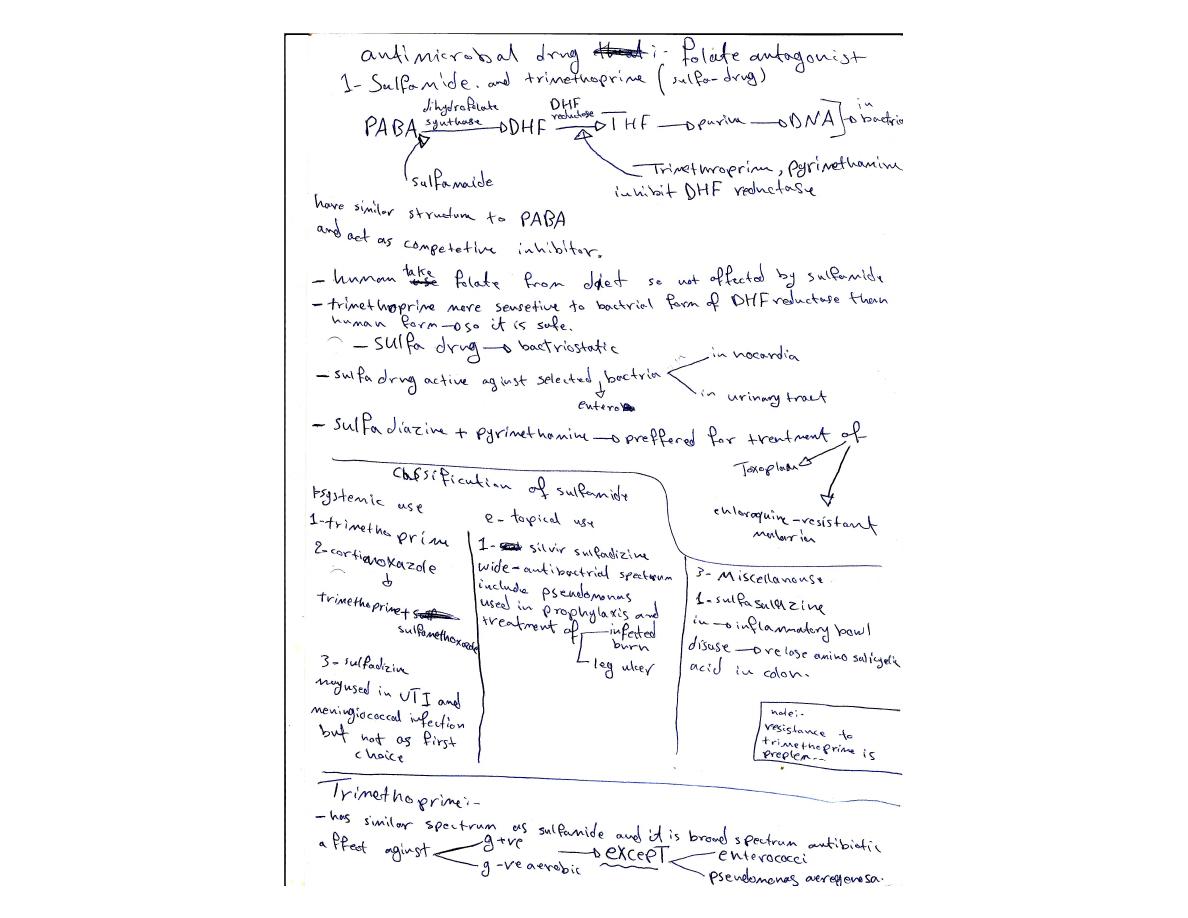 antimicrobal drug :- folate antagonist
1- Sulfamide. and trimethoprine (sulfa-drug)
dihydrofolate synthase
DHF reductase
PABA → DHF → THF → purine → DNA] → in bactria
sulfamaide
Trimethroprim, pyrimethamine
inhibit DHF reductase
have similar structure to PABA
and act as competetive inhibitor.
- human take folate from diet so not affected by sulfamide
- trimethoprine more sensetive to bactrial form of DHF reductase than
human form → so it is safe.
- sulfa drug → bactriostatic
- sulfa drug active aginst selected bactria
entero
in nocardia
in urinary tract
- sulfadiazine + pyrimethamine → preffered for trentment of
Toxoplam
chloroquine-resistant
malaria
Classification of sulfamide
1-systemic use
1-trimethoprime
2-cortimoxazole
trimethoprime +
sulfamethoxazole
3- sulfadizin
mayused in UTI and
meningiococcal infection
but not as first
choice
2- topical use
1- silvir sulfadizine
wide-antibactrial spectrum
include pseudomonas
used in prophylaxis and
treatment of
infected
burn
leg ulcer
3- Miscellanouse
1-sulfasulazine
in → inflammatory bowl
disuse → relase amino salicylic
acid in colon.
note:-
resistance to
trimethoprime is
preplem...
Trimethoprime:-
- has similar spectrum as sulfamide and it is broad spectrum antibiotic
affect aginst
g +ve
g -ve aerobic
→ except
enterococci
pseudomonas aeregenosa.